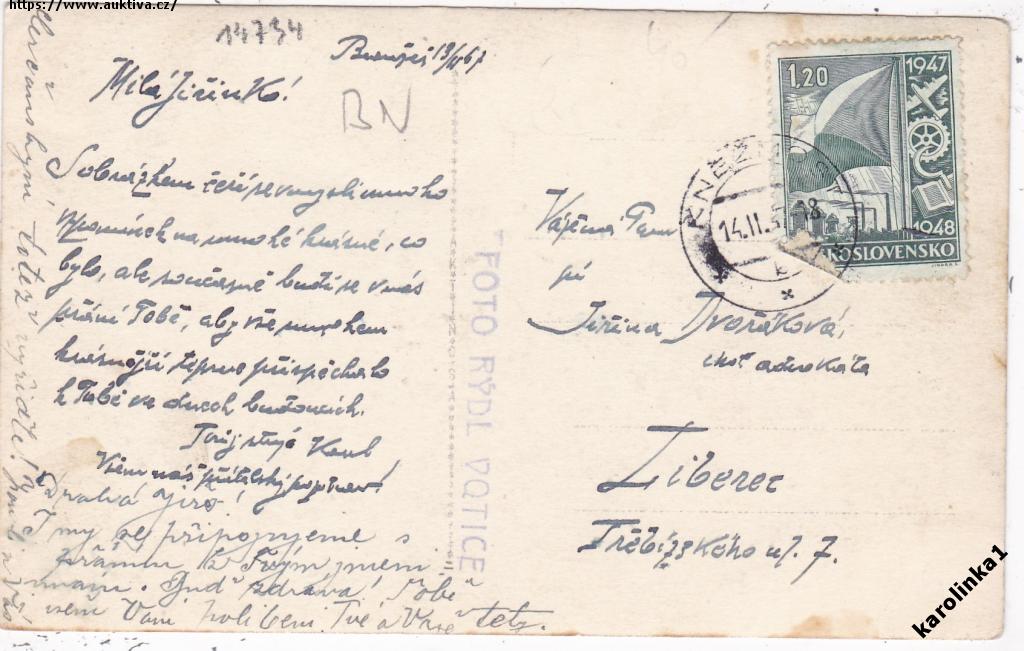 https://www.auktiva.cz/
14734
19/II 67
Milá Jiřinko!
BN
S obrázkem mnoho
vzpomínek na mnohé krásné, co
bylo, ale současně budí se v nás
přání Tobě, aby vše mnohem
krásnější teprve přispěchalo
k Tobě ve dnech budoucích.
Tvůj strýc Karel
Všem náš přátelský pozdrav!
Drahá Jiřo!
I my se připojujeme s
přáním k Tvým jmeninám.
Buď zdráva! Tobě
i všem Vám políbení Tvé a Vaše tety.
totéž vyřiďte!
FOTO RÝDL VOTICE
1,20
1947
1948
ČESKOSLOVENSKO
14.II.
18
Vážená Paní
pí
Jiřina Dvořáková,
choť advokáta
Liberec
Třebízského ul. 7.
karolinka1